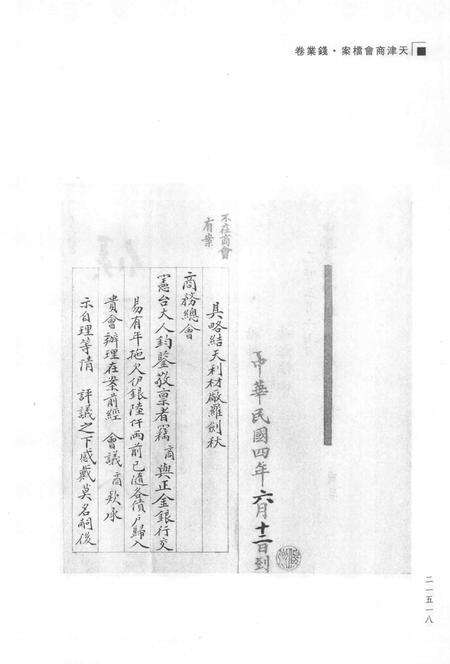 天津商會檔案·錢業卷
中華民國四年六月十二日到
不在商會
有案
具略結天利材廠羅劍秋
商務總會
憲台大人鈞鑒敬稟者竊商與正金銀行交
易有年拖欠伊銀陸仟兩前已隨各債戶歸入
貴會辦理在案前經會議商款承
示自理等情評議之下感戴莫名嗣後
二一五一八